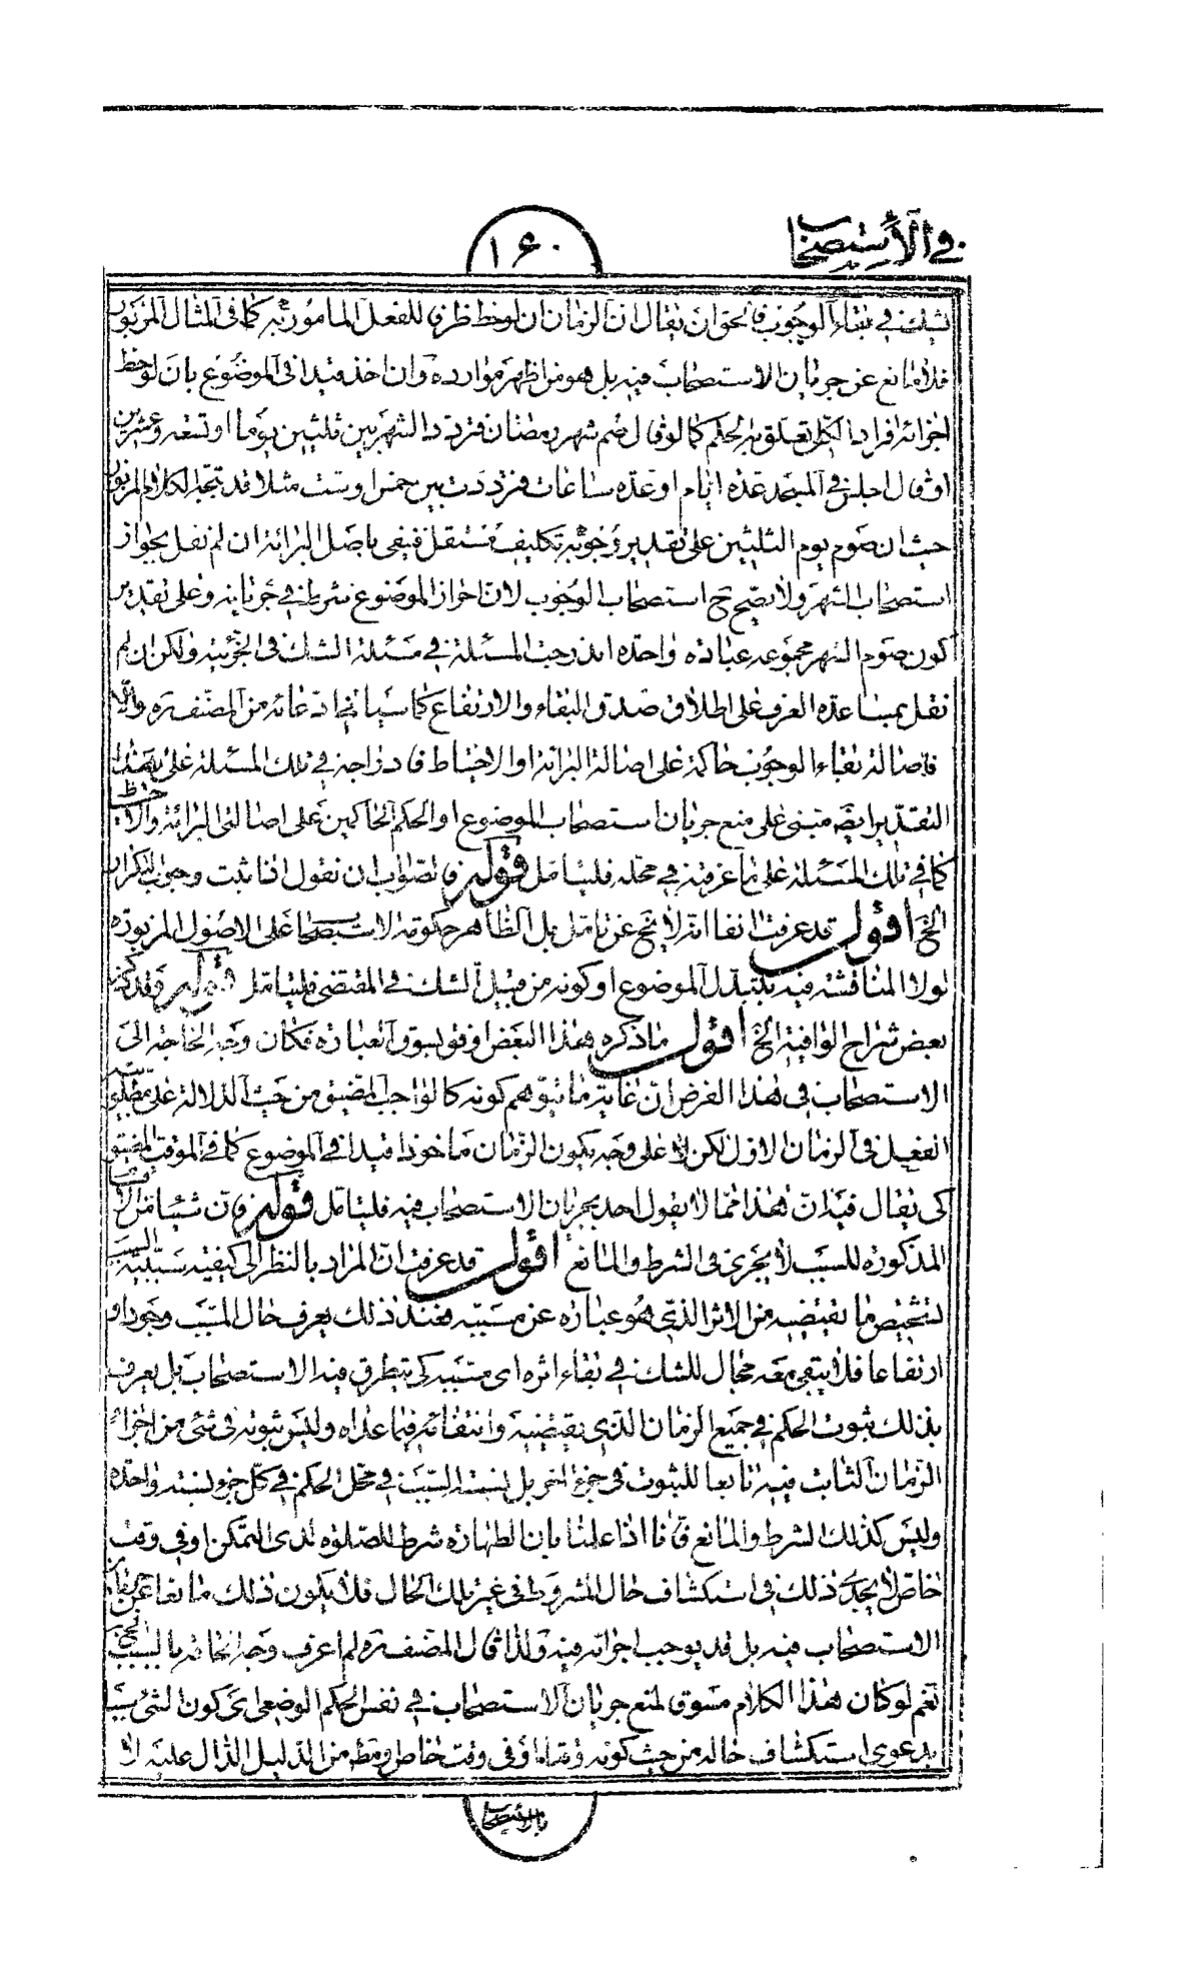 في الاستصحاب
١٦٠
لشك في بقاء الوجوب فالحق ان يقال ان الزمان ان لوحظ ظرفا للفعل المامور به كما في المثال المزبور
فلا مانع عن جريان الاستصحاب فيه بل هو من اظهر موارده وان اخذ قيدا في الموضوع بان لوحظ
اجزائه افرادا لكلي تعلق به الحكم كما لو قال صم شهر رمضان فتردد الشهر بين ثلثين يوما او تسعة وعشرين
او قال اجلس في المسجد عدة ايام او عدة ساعات فترددت بين خمس او ست مثلا فقد يتجه الكلام المزبور
حيث ان صوم يوم الثلثين على تقدير وجوبه تكليف مستقل فينفي باصل البرائة ان لم نقل بجواز
استصحاب الشهر ولا يصح ح استصحاب الوجوب لان احراز الموضوع شرط في جريانه وعلى تقدير
كون صوم الشهر مجموعه عبادة واحدة اندرجت المسئلة في مسئلة الشك في الجزئية ولكن ان لم
نقل بمساعدة العرف على اطلاق صدق البقاء والارتفاع كما سياتي ادعائه من المصنف ره والا
فاصالة بقاء الوجوب حاكمة على اصالة البرائة او الاحتياط فادراجه في تلك المسئلة على هذا
التقدير ايضا مبتنى على منع جريان استصحاب الموضوع او الحكم الحاكمين على اصالتي البرائة والاحتياط
كما في تلك المسئلة على ما عرفته في محله فليتامل قوله فالصواب ان نقول اذا ثبت وجوب التكرار
الخ اقول قد عرفت انفا انه لا يخ عن تامل بل الظاهر حكومة الاستصحاب على الاصول المزبورة
لولا المناقشة فيه بتبدل الموضوع او كونه من قبيل الشك في المقتضى فليتامل قوله وقد ذكر
بعض شراح الوافية الخ اقول ما ذكره هذا البعض اوفق بسوق العبارة فكان وجه الحاجة الى
الاستصحاب في هذا الفرض ان غاية ما يتوهم كونه كالواجب المضيق من حيث الدلالة على مطلوبية
الفعل في الزمان الاول لكن لا على وجه يكون الزمان ماخوذا قيدا في الموضوع كما في الموقت المضيق
كى يقال فيه ان هذا مما لا يقول احد بجريان الاستصحاب فيه فليتامل قوله فان شيئا من الاقسام
المذكورة للسبب لا يجري في الشرط والمانع اقول قد عرفت ان المراد بالنظر الى كيفية سببية السبب
تشخيص ما يقتضيه من الاثر الذي هو عبارة عن مسببه فعند ذلك يعرف حال المسبب وجودا و
ارتفاعا فلا يبقى معه مجال للشك في بقاء اثره اى مسببه كى يتطرق فيه الاستصحاب بل يعرف
بذلك ثبوت الحكم في جميع الزمان الذي يقتضيه وانتفائه فيما عداه وليس ثبوته في شئ من اجزاء
الزمان الثابت فيه تابعا للثبوت في جزء اخر بل نسبة السبب في محل الحكم في كل جزء نسبة واحدة
وليس كذلك الشرط والمانع فانا اذا علمنا بان الطهارة شرط للصلوة لدى التمكن او في وقت
خاص لا يجدى ذلك في استكشاف حال المشروط في غير تلك الحال فلا يكون ذلك مانعا عن جريان
الاستصحاب فيه بل قد يوجب اجرائه فيه ولذا قال المصنف ره لم اعرف وجه الحاقه بالسبب الخ
نعم لو كان هذا الكلام مسوق لمنع جريان الاستصحاب في نفس الحكم الوضعى اى كون الشئ سببا
بدعوى استكشاف حاله من حيث كونه او في وقت خاص وفقط من الدليل الدال عليه لا